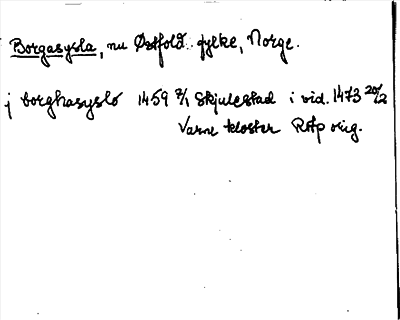 Borgasysla, nu Østfold fylke, Norge.
j borghasyslo 1459 7/1 Skjulestad i vid. 1473 20/2
Varne kloster RAp orig.